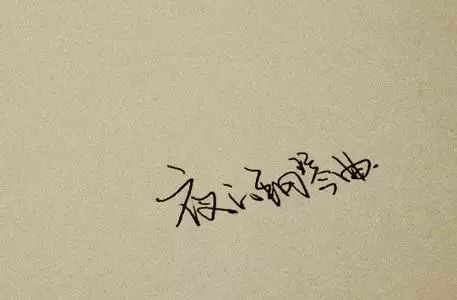 夜深钢琴曲